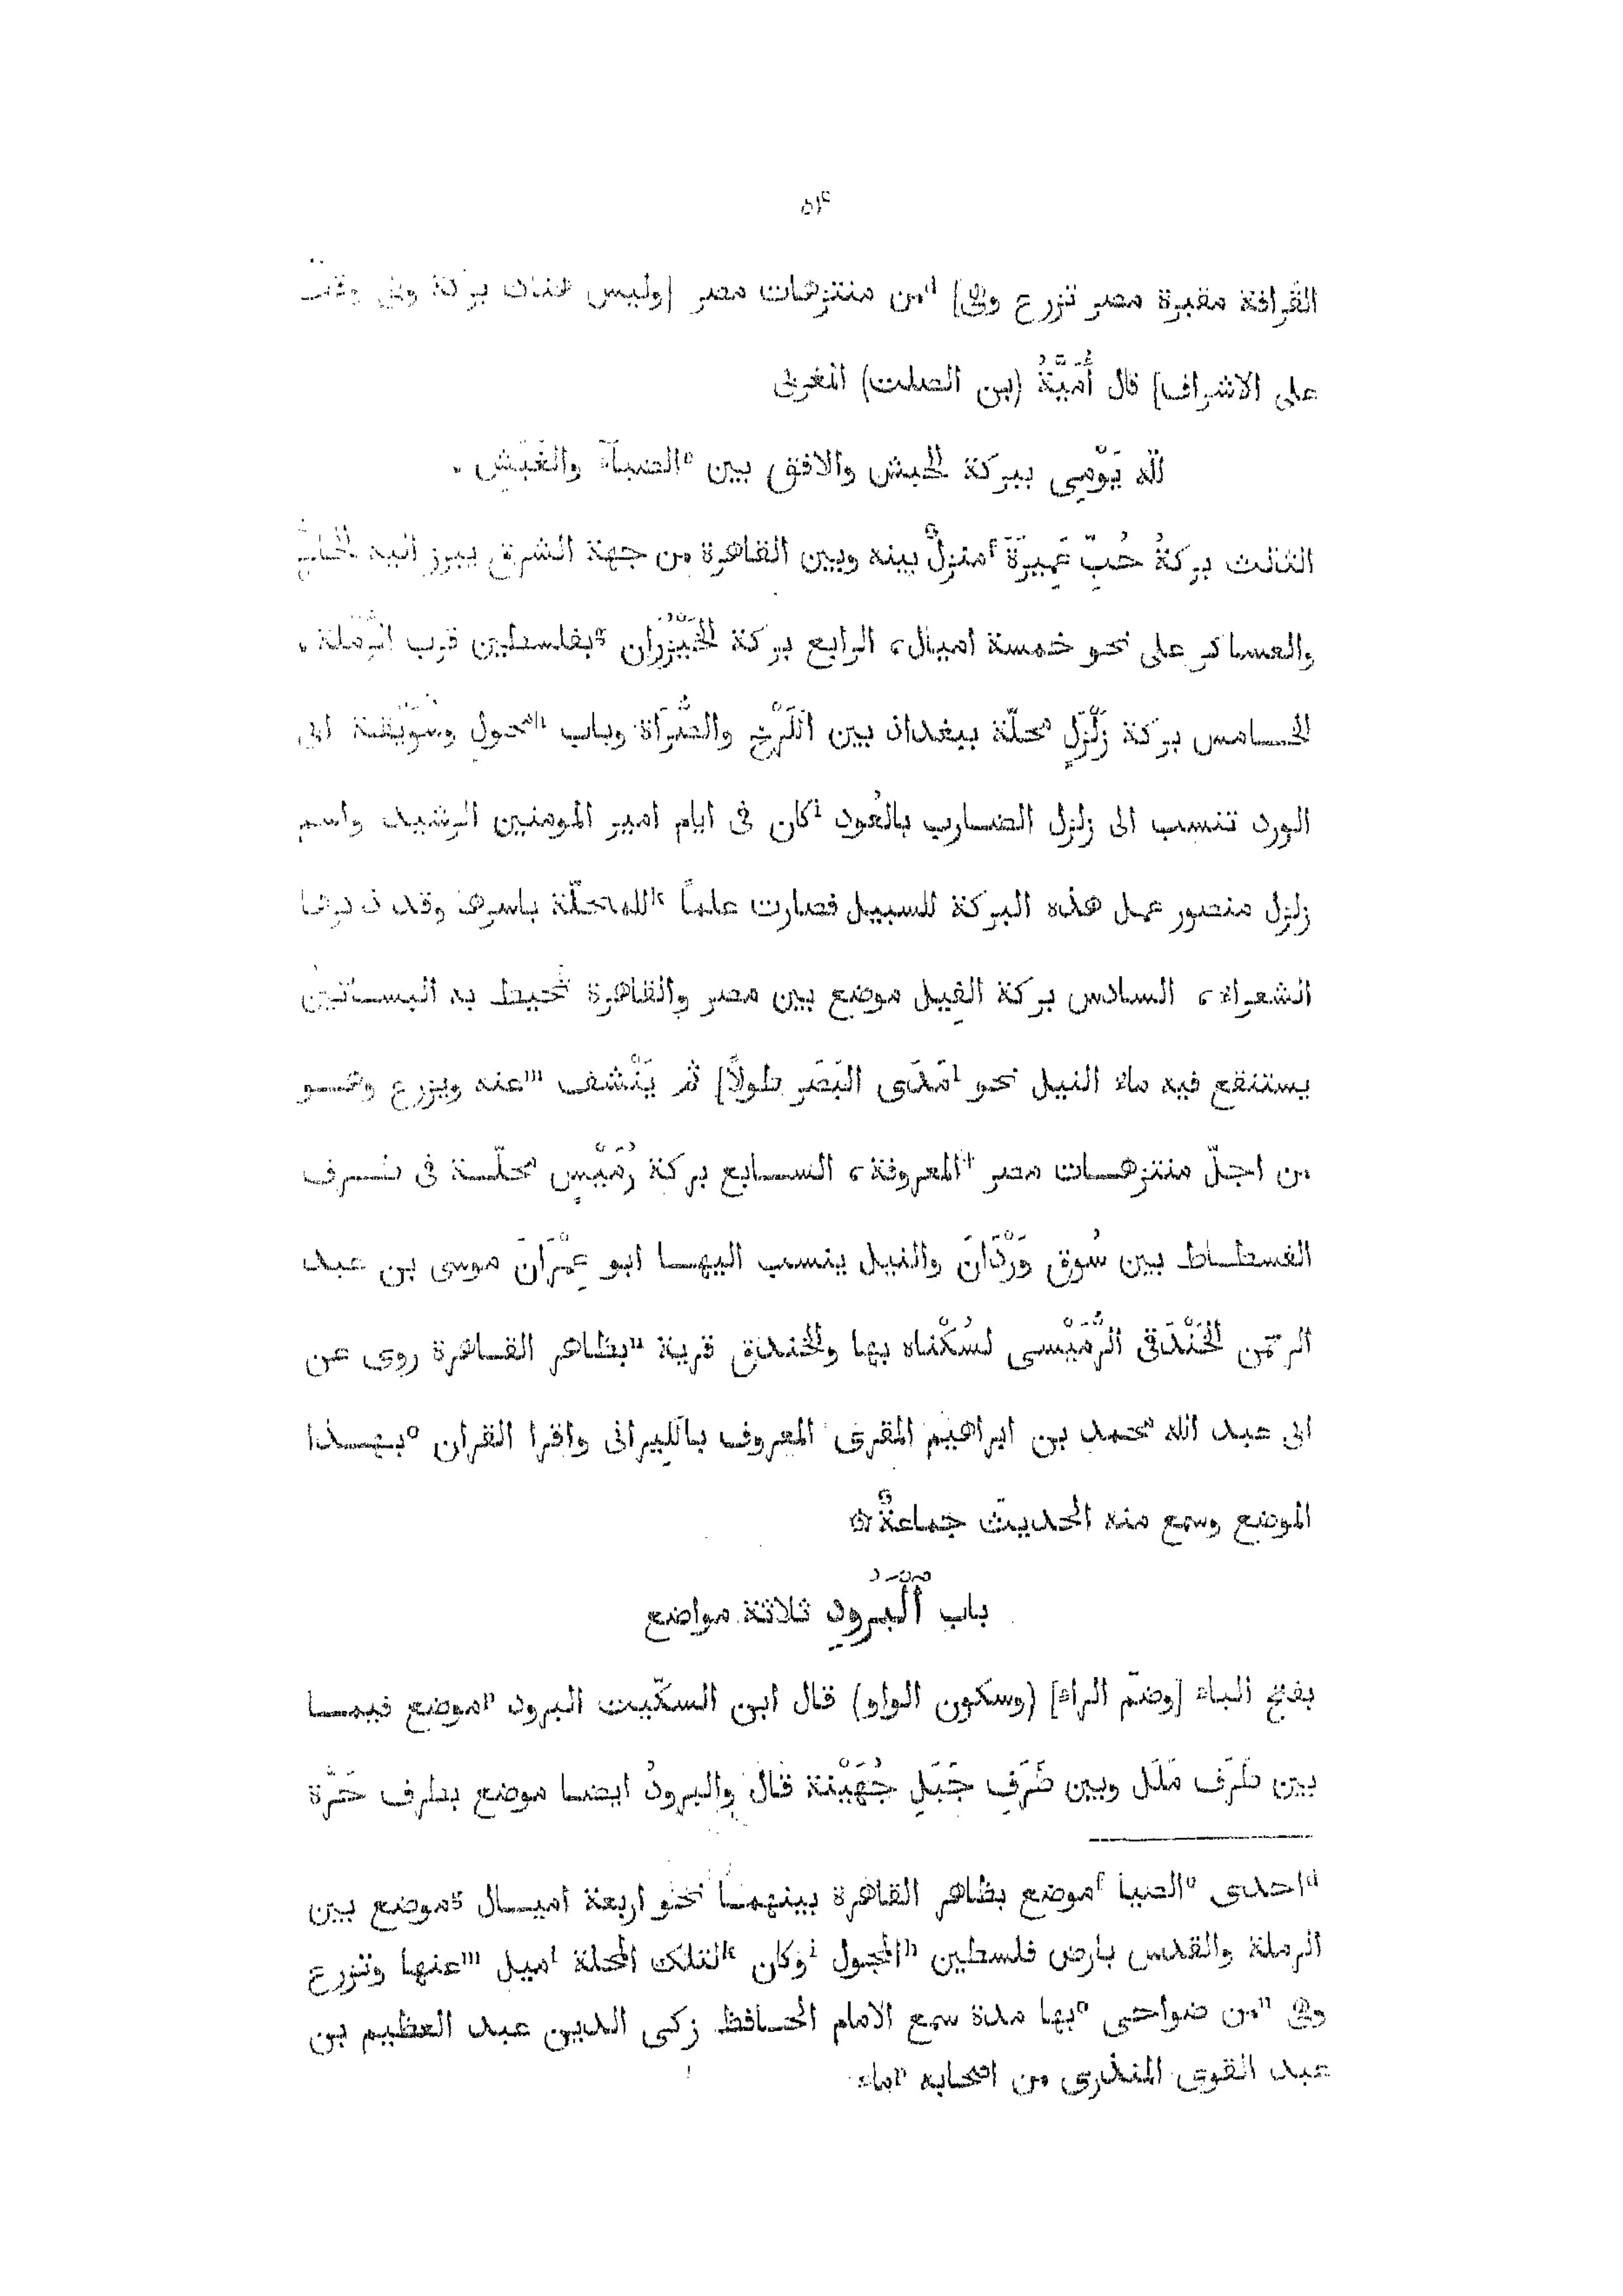 ٥٢
القَرافة مقبرة مصر تزرع وهي] dمن منتزهات مصر [وليس هناك بركة وهي وقف
على الاشراف] قال أُمَيَّةُ (بن الصلت) المغربي
لله يَوْمِي ببركة الحبش والافق بين eالضياء والغَبَش،
الثالث بركةُ حُبّ عَمِيرَةَ fمنزلٌ بينه وبين القاهرة من جهة الشرق يبرز اليه الحاج
والعساكر على نحو خمسة اميال، الرابع بركة الخَيْزُران gبفلسطين قرب الرَّمْلة،
الخامس بركة زَلْزَلٍ محلّة ببغداد بين الكَرْخ والصَّرَاة وباب hمحول وسُوَيْقَة ابي
الورد تنسب الى زلزل الضارب بالعُود iكان في ايام امير المومنين الرشيد واسم
زلزل منصور عمل هذه البركة للسبيل فصارت علماً kللمحلّة باسرها وقد ذكرها
الشعراء، السادس بركة الفِيل موضع بين مصر والقاهرة تُحيط به البساتين
يستنقع فيه ماء النيل نحو lمَدَى البَصَر طولاً] ثم يَنْشف mعنه ويزرع وهو
من اجلّ منتزهات مصر +المعروفة، السابع بركة رُمَيْسٍ محلّة في طرف
الفسطاط بين سُوق وَرْدَانَ والنيل ينسب اليها ابو عِمْرَانَ موسى بن عبد
الرحمن الخَنْدَقي الرُّمَيْسي لسُكْناه بها والخندق قرية nبظاهر القاهرة روى عن
ابي عبد الله محمد بن ابراهيم المقرى المعروف بالكِيراني واقرا القران oبهذا
الموضع وسمع منه الحديث جماعةٌ۞
باب اَلْبَرُودِ ثلاثة مواضع
بفتح الباء [وضمّ الراء] (وسكون الواو) قال ابن السكّيت البرود pموضع فيما
بين طَرَف مَلَل وبين طَرَفِ جَبَلِ جُهَيْنة قال والبرودُ ايضا موضع بطرف حَرَّة
dاحدى eالضيا fموضع بظاهر القاهرة بينهما نحو اربعة اميال gموضع بين
الرملة والقدس بارض فلسطين hالمجول iوكان kلتلك المحلة lميل mعنها وتزرع
وهي nمن ضواحى oبها مدة سمع الامام الحافظ زكى الدين عبد العظيم بن
عبد القوى المنذرى من اصحابه pماء